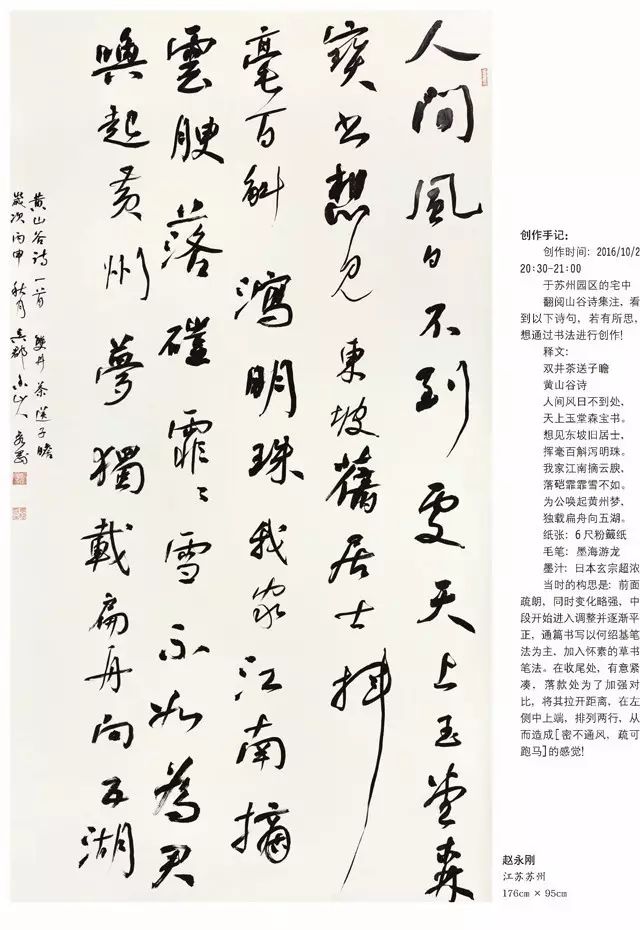 人間風日不到處天上玉堂森
寶書想見東坡舊居士揮
毫百斛瀉明珠我家江南摘
雲腴落磑霏〻雪不如為君
喚起黃州夢獨載扁舟向五湖
黄山谷诗一首 雙井茶送子瞻
歲次丙申秋月吳郡
创作手记:
创作时间: 2016/10/2
20:30-21:00
于苏州园区的宅中
翻阅山谷诗集注, 看
到以下诗句, 若有所思,
想通过书法进行创作!
释文:
双井茶送子瞻
黄山谷诗
人间风日不到处,
天上玉堂森宝书。
想见东坡旧居士,
挥毫百斛泻明珠。
我家江南摘云腴,
落硙霏霏雪不如。
为公唤起黄州梦,
独载扁舟向五湖。
纸张: 6尺粉纸
毛笔: 墨海游龙
墨汁: 日本玄宗超浓
当时的构思是: 前面
疏朗, 同时变化略强, 中
段开始进入调整并逐渐平
正, 通篇书写以何绍基笔
法为主, 加入怀素的草书
笔法。在收尾处, 有意紧
凑, 落款处为了加强对
比, 将其拉开距离, 在左
侧中上端, 排列两行, 从
而造成[密不通风, 疏可
跑马]的感觉!
赵永刚
江苏苏州
176cm × 95cm